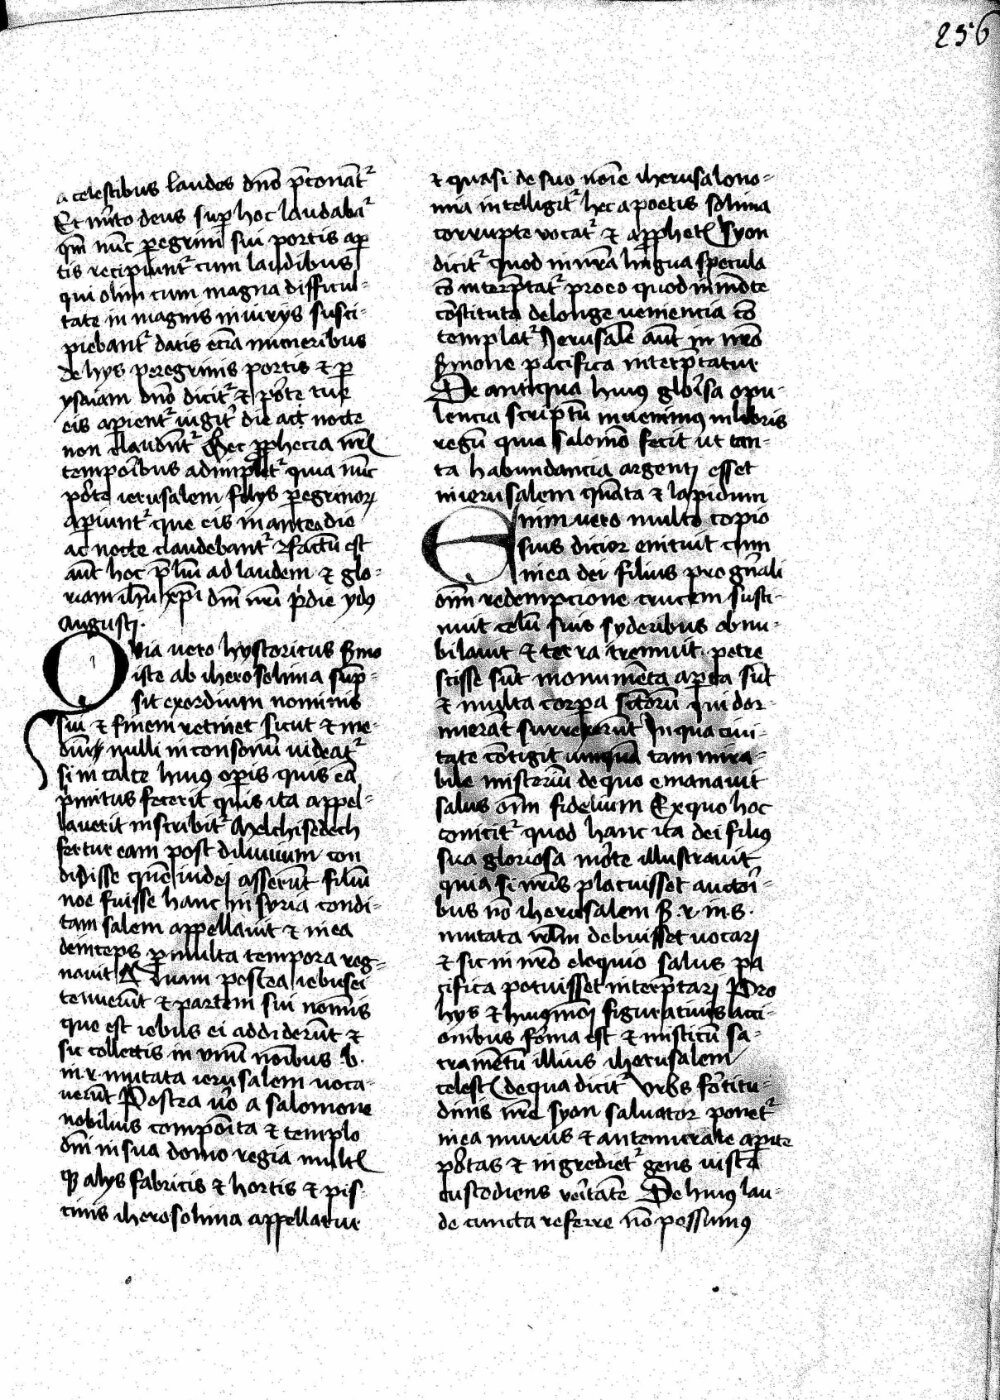 256
a celestibus laudes dn̄o p̄conāt᷑
Et m̄ito deus sup̱ hoc laudabat᷑
qm̄ nūc pegrini sui portis ap̱
tis recipiunt᷑ cum laudibus
qui olim cum magna difficul=
tate in magnis iniurijs susci=
piebant᷑ datis ecīa muneribus
de hijs peregrinis portis et p̱
ysaiam dn̄o dicit᷑ et p̄orte tue
eis aperient᷑ iugit᷑ die act nocte
non claudēt᷑ Hec p̱phecia nr̄is
temporibus adimplet᷑ quia nūc
p̄orte ierusalem filijs p̱egrinorꝝ
aperiunt᷑ que eis in antea die
ac nocte claudebant᷑ Factū est
aūt hoc p̄liū ad laudem et glo=
riam ih̄u xp̄i dn̄i nr̄i p̄die ydꝰ
augusti.
Quia uero hystoricus s̄mo
iste ab iherosolima sup̄=
sit exordium nominis
sui et finem retinet sicut et me=
diūꝫ nulli inconsonū uideat᷑
si in calce huiꝰ op̱is quis eā
p̄mitus fecerit quis ita appel=
lauerit inscribit᷑ Melchisedech
fertur eam post diluuium con
didisse quē iudei asserūt filiū
noe fuisse hanc in syria condi=
tam salem appellauit et in ea
deinceps p̱ multa tempora reg=
nauit Quam postea iebusei
tenuerūt et partem sui nom̄is
que est iebus ei addiderūt et
sic collectis in vnū noībus b.
in r. mutata ierusalem uoca=
uerūt Postea u̅o a salomone
nobilius compoīta et templo
dn̄i in sua domo regia multis
qꝫ alijs fabricis et hortis et pis=
cinis iherosolima appellatur
et quasi de suo noīe iherusalono=
mia intelligit᷑ hec a poetis solima
corrupte vocat᷑ et a p̱phetis syon
dicit᷑ quod in nr̄a lingua specula
cō interp̄tat᷑ pro eo quod in mōte
cōstituta de longe ueniencia cō
templat᷑ Jerusalē aūt in nr̄o
s̄mone pacifica interp̄tatur
De antiqua huiꝰ glōisa opu=
lencia scriptū inuenimꝰ in libris
regū quia salomō fecit ut tan=
ta habundancia argenti esset
in ierusalem quāta et lapidum
Enim uero multo copio
sius dicior enituit cum
in ea dei filius pro gn̄ali
oīm redempcione crucem susti=
nuit celū suis syderibus obnu=
bilauit et terra tremuit petre
scisse sūt monumēta ap̱ta sūt
et multa corp̱a sctōrū qui dor=
mierāt surrexerūt In qua ciui=
tate cōtigit unquā tam mira=
bile misteriū de quo emanauit
salus oīm fidelium Ex quo hoc
conicit᷑ quod hanc ita dei filiꝰ
sua gloriosa morte illustrauit
quia si nr̄is placuisset auctori=
bus nō iherusalem s. r. in s.
mutata debuisset uocari
et sic in nr̄o eloquio salus pa
cifica potuisset interp̄tari Pro
hijs et huiꝰmōi figuratiuis acci=
onibus forma est et misticū sa=
cramētū illius iherusalem
celestis de qua dicit᷑ Vrbs fortitu=
dinis nr̄e syon saluator ponet᷑
in ea murus et antemurale aperite
portas et ingrediet᷑ gens iusta
custodiens ueritatē De huiꝰ lau=
de cuncta referre nō possumꝰ